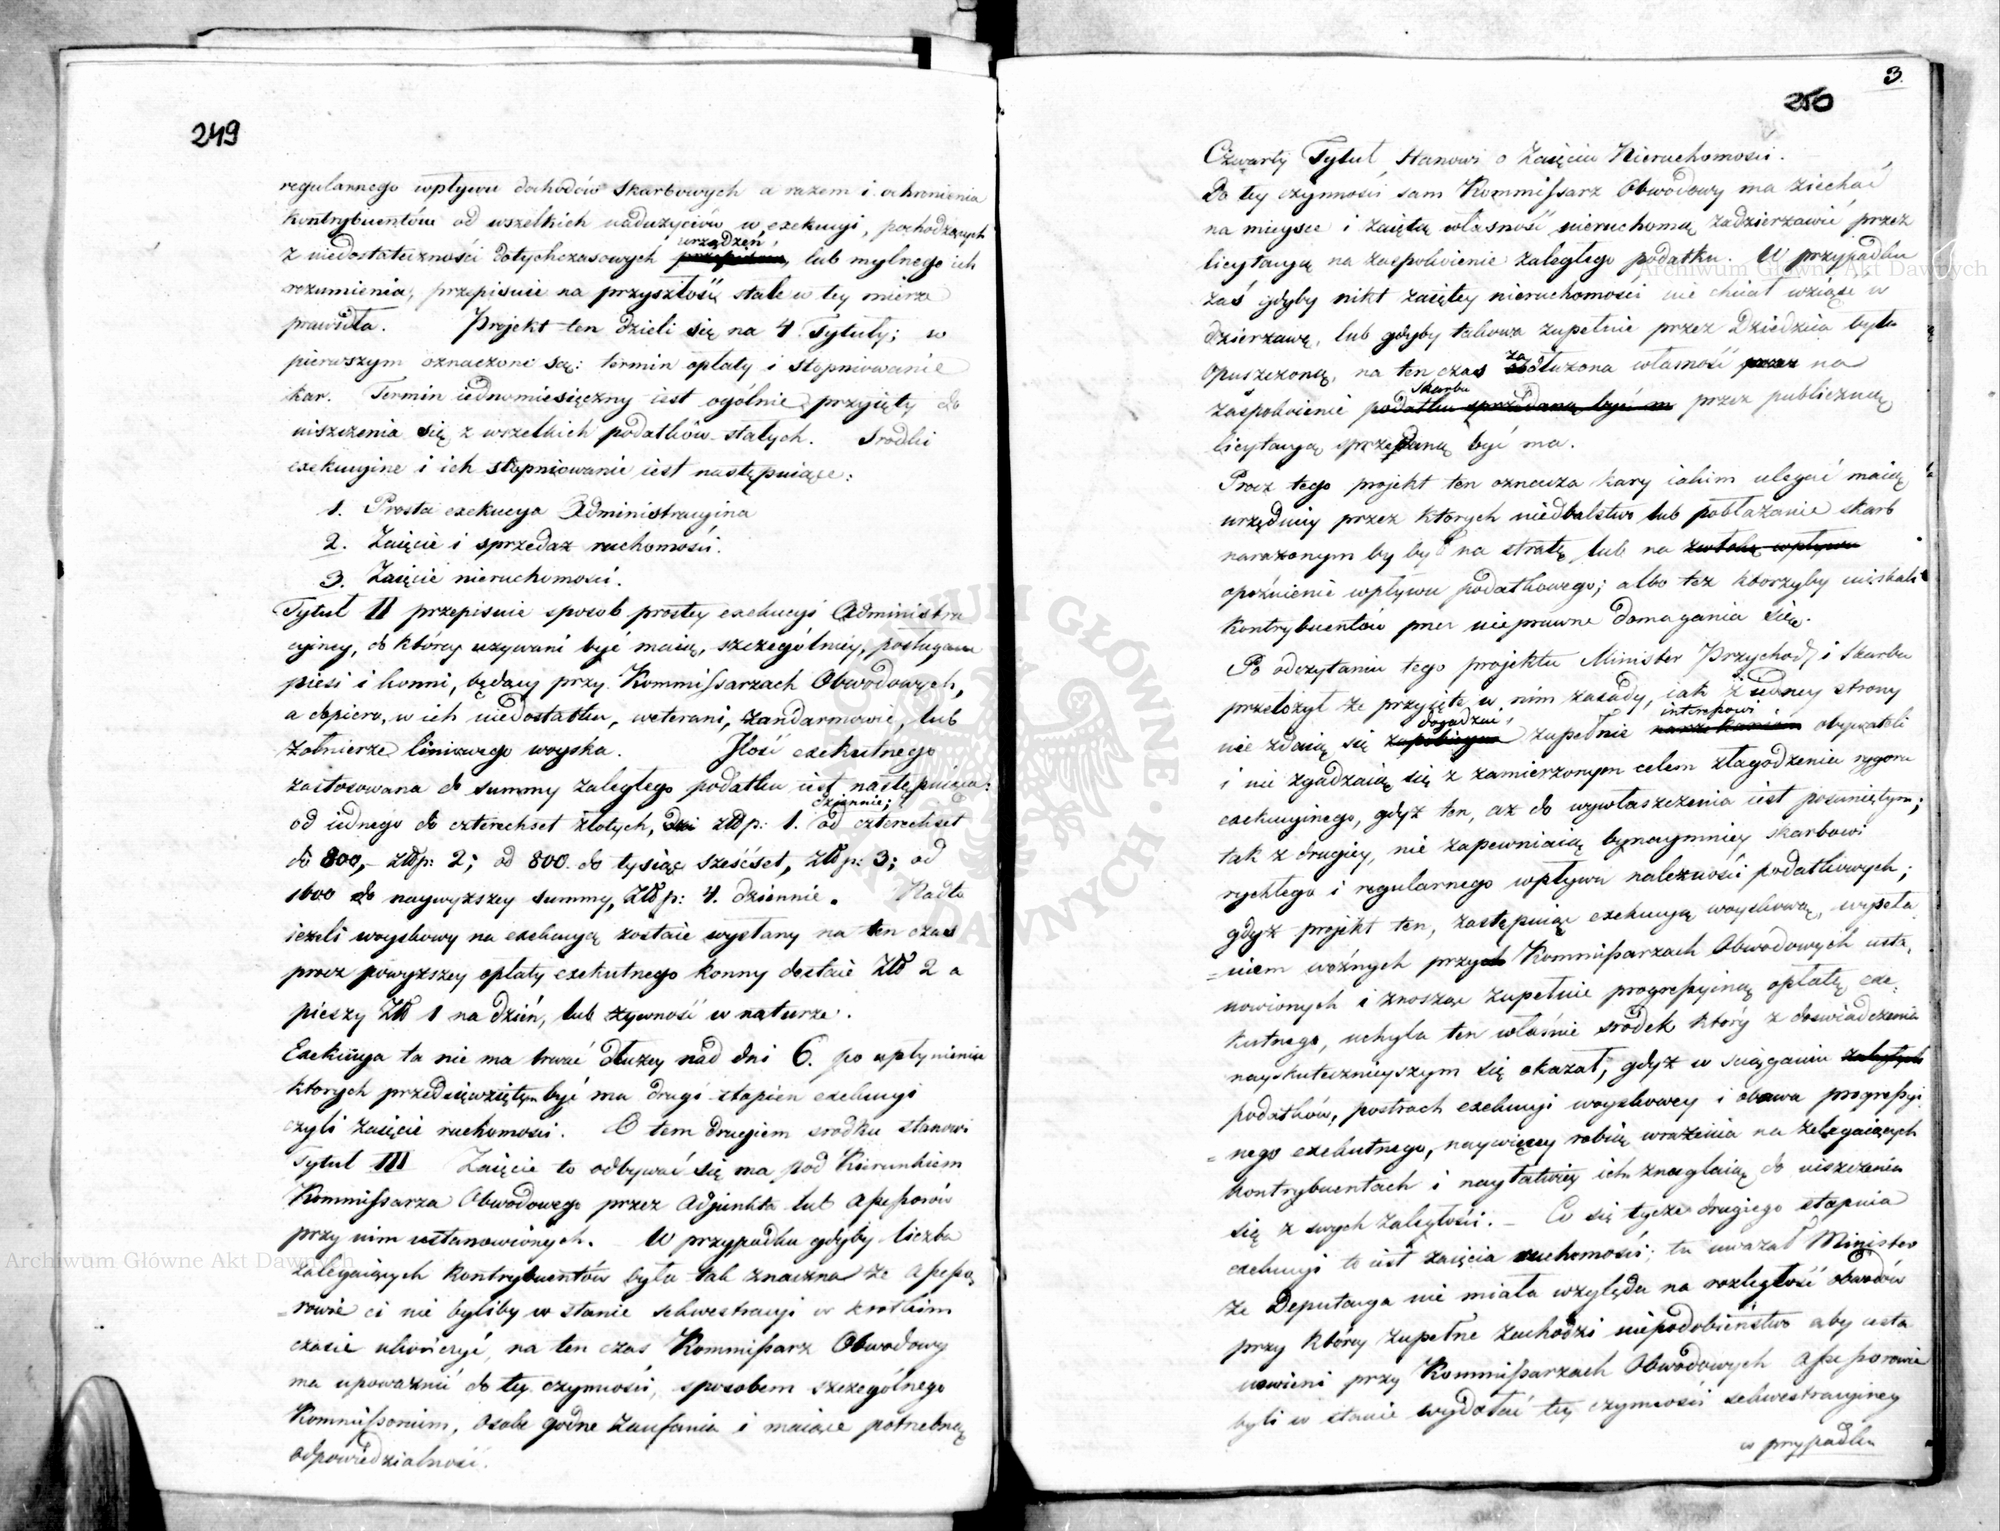 249
regularnego wpływu dochodów skarbowych a razem i ochronienia
kontrybuentów od wszelkich nadużyciów w exekucyi, pochodzących
z niedostateczności dotychczasowych urządzeń, lub mylnego ich
rozumienia, przepisuie na przyszłość stałe w tey mierze
prawidła. Projekt ten dzieli się na 4. Tytuły; w
pierwszym oznaczone są: termin opłaty i stopniowanie
kar. Termin iednomiesięczny iest ogólnie przyięty do
uiszczenia się z wszelkich podatków stałych. Srodki
exekucyine i ich stopniowanie iest następuiące:
1. Prosta exekucya Administracyina
2. Zaięcie i sprzedaż ruchomości.
3. Zaięcie nieruchomości.
Tytuł II przepisuie sposob prostey exekucyi Administra
cyiney, do którey używani być maią, szczególniey, posługacze
piesi i konni, będący przy Kommissarzach Obwodowych,
a dopiero, w ich niedostatku, weterani, żandarmowie, lub
żołnierze liniowego woyska. Ilość exekutnego
zastosowana do summy zaległego podatku iest następuiąca:
od iednego do czterechset złotych, złp: 1. dziennie; od czterechset
do 800,- złp: 2; od 800. do tysiąc sześćset, złp: 3; od
1600 do naywyższey summy, złp: 4. dziennie. Nadto
ieżeli woyskowy na exekucyą zostaie wysłany na ten czas
procz powyższey opłaty exekutnego konny dostaie Zł 2 a
pieszy Zł 1 na dzień, lub żywność w naturze.
Exekucya ta nie ma trwać dłużey nad dni 6. po upłynieniu
ktorych przedsięwziętym być ma drugi stopień exekucyi
czyli zaięcie ruchomości. O tem drugiem srodku stanowi
Tytuł III Zaięcie to odbywać się ma pod Kierunkiem
Kommissarza Obwodowego przez Adjunkta lub Assessorów
przy nim ustanowionych. W przypadku gdyby liczba
zalegaiących kontrybuentów była tak znaczna że Assesso
=rowie ci nie byliby w stanie sekwestracyi w krotkim
czasie ukończyć, na ten czas Kommissarz Obwodowy
ma upoważnić do tey czynności, sposobem szczególnego
Kommissorium, osoby godne zaufania i maiące potrzebną
odpowiedzialność.
3.
250
Czwarty Tytuł stanowi o Zaięciu Nieruchomości.
Do tey czynności sam Kommissarz Obwodowy ma ziechać
na mieysce i zaiętą własność nieruchomą zadzierzawić przez
licytacyą na zaspokoienie zaległego podatku. W przypadku
zaś gdyby nikt zaiętey nieruchomości nie chciał wziąść w
dzierzawę, lub gdyby takowa zupełnie przez Dziedzica była
opuszczoną, na ten czas zadłużona własność na
zaspokoienie Skarbu podatku sprzedaną być m przez publiczną
licytacyą sprzedaną być ma.
Procz tego projekt ten oznacza kary iakim ulegać maią
urzędnicy przez ktorych niedbalstwo lub pobłażanie skarb
narażonym by był na stratę lub na zwłokę wpływu
opóźnienie wpływu podatkowego; albo też ktorzyby uciskali
Kontrybuentów przez nieprawne domagania się.
Po odczytaniu tego projektu Minister Przychod: i Skarbu
przełożył że przyięte w nim zasady, iak z iedney strony
nie zdaią się dogadzać zupełnie interessowi obywateli
i nie zgadzaią się z zamierzonym celem złagodzenia rygoru
exekucyinego, gdyż ten, aż do wywłaszczenia iest posuniętym;
tak z drugiey, nie zapewniaią bynaymniey skarbowi
rychłego i regularnego wpływu należności podatkowych;
gdyż projekt ten, zastępuiąc exekucyą woyskową, wysyła
=niem woźnych przy Kommissarzach Obwodowych usta,
nowionych i znosząc zupełnie progressyiną opłatę exe,
kutnego, uchyla ten właśnie srodek który z doswiadczenia
nayskutecznieyszym się okazał, gdyż w sciąganiu zaległych
podatków, postrach exekucyi woyskowey i obawa progressyi
=nego exekutnego, naywięcey robią wrażenia na zalegaiących
kontrybuentach i nayłatwiey ich znaglaią do uiszczenia
się z swych zaległości. – Co się tycze drugiego stopnia
exekucyi to iest zaięcia ruchomości; tu uważał Minister
że Deputacya nie miała względu na rozległość obwodów
przy ktorey zupełne zachodzi niepodobieństwo aby usta
nowieni przy Kommissarzach Obwodowych Assessorowie
byli w stanie wydołać tey czynności sekwestracyiney
w przypadku
Archiwum Główne Akt Dawnych
Archiwum Główne Akt Dawnych
ARCHIWUM GŁÓWNE AKT DAWNYCH